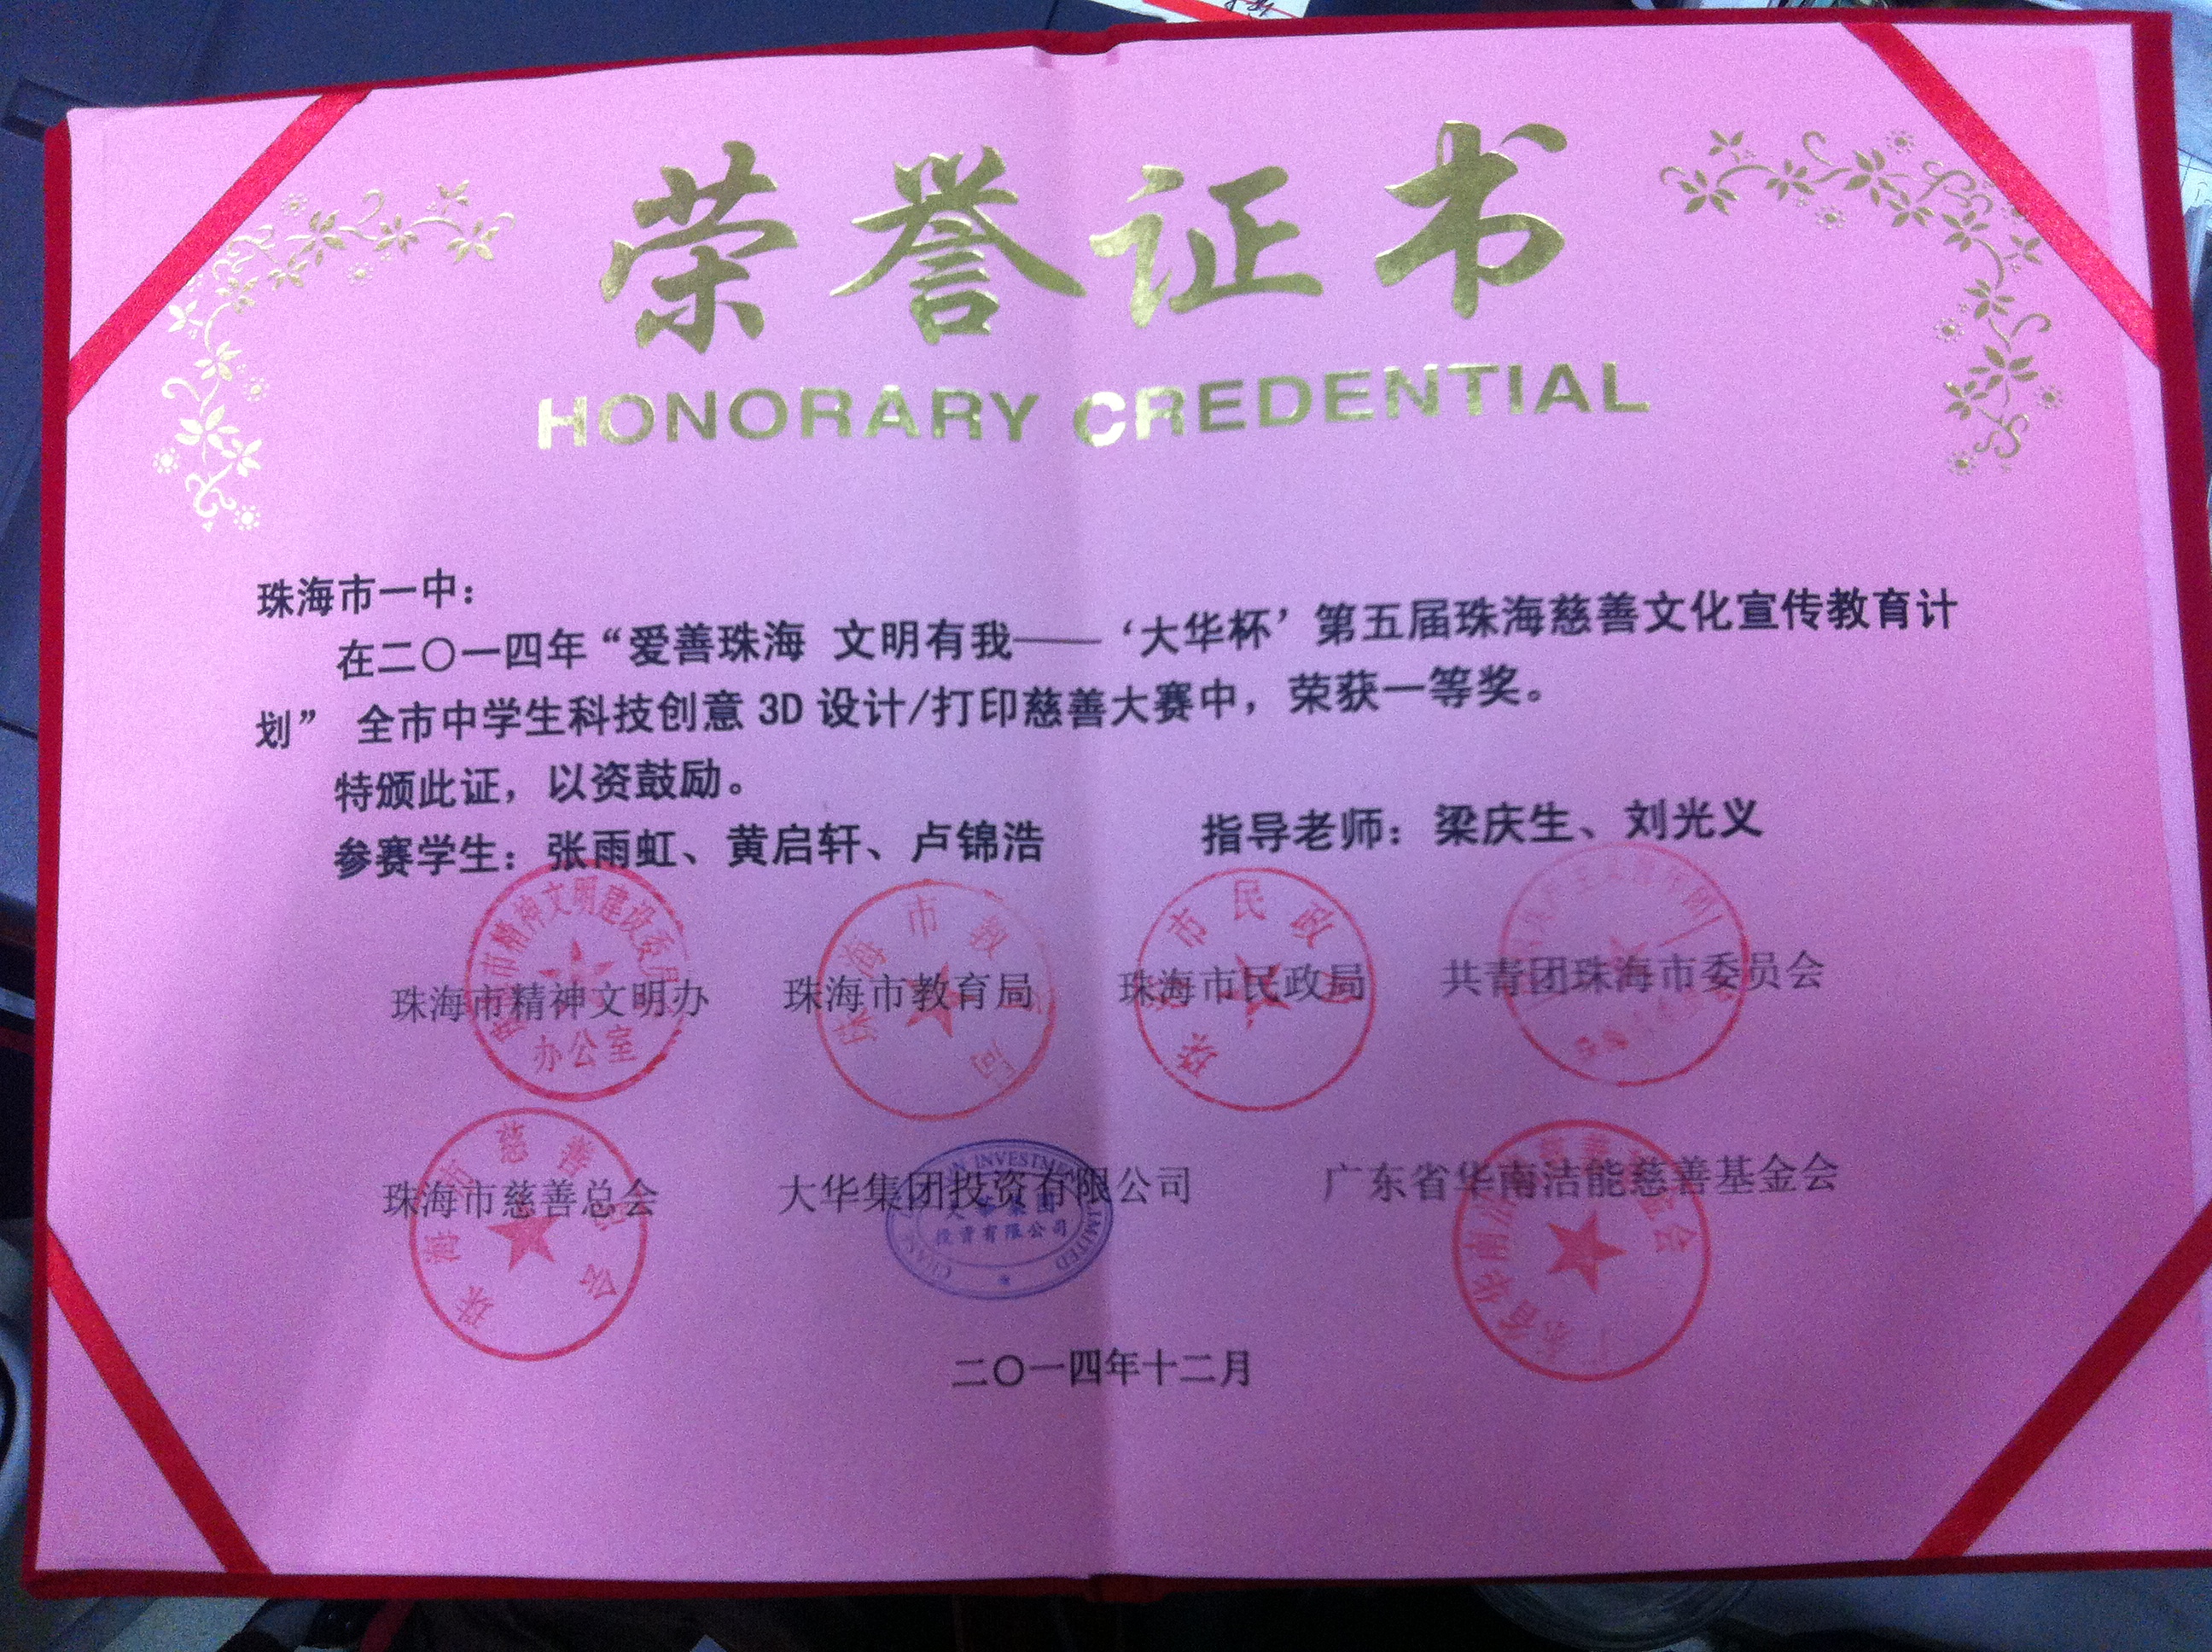 荣誉证书
HONORARY CREDENTIAL
珠海市一中：
在二〇一四年“爱善珠海 文明有我——‘大华杯’第五届珠海慈善文化宣传教育计
划” 全市中学生科技创意 3D 设计/打印慈善大赛中，荣获一等奖。
特颁此证，以资鼓励。
参赛学生：张雨虹、黄启轩、卢锦浩 指导老师：梁庆生、刘光义
珠海市精神文明办 珠海市教育局 珠海市民政局 共青团珠海市委员会
办公室
珠海市慈善总会 大华集团投资有限公司 广东省华南洁能慈善基金会
大華集團
投資有限公司
二〇一四年十二月